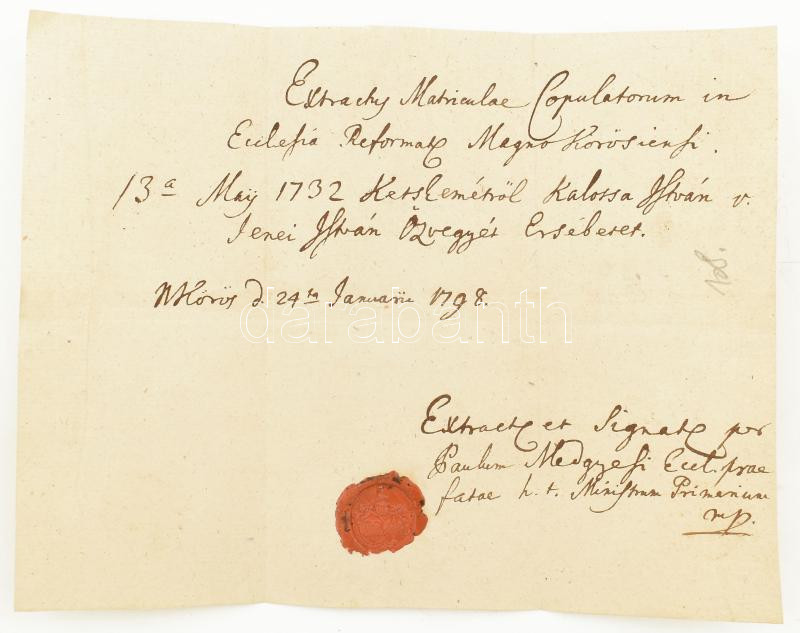 Extractus Matriculae Copulatorum in
Ecclesia Reformata Magno Körösiensi.
13ª May 1732 Ketskemétröl Kalossa István v.
Jenei István Özvegyét Ersébetet.
NKörös d. 24ta Januarii 1798.
darabanth
Extracta et Signata per
Paulum Medgyesi Eccl. prae
fatae h. t. Ministrum Primarium
mp.